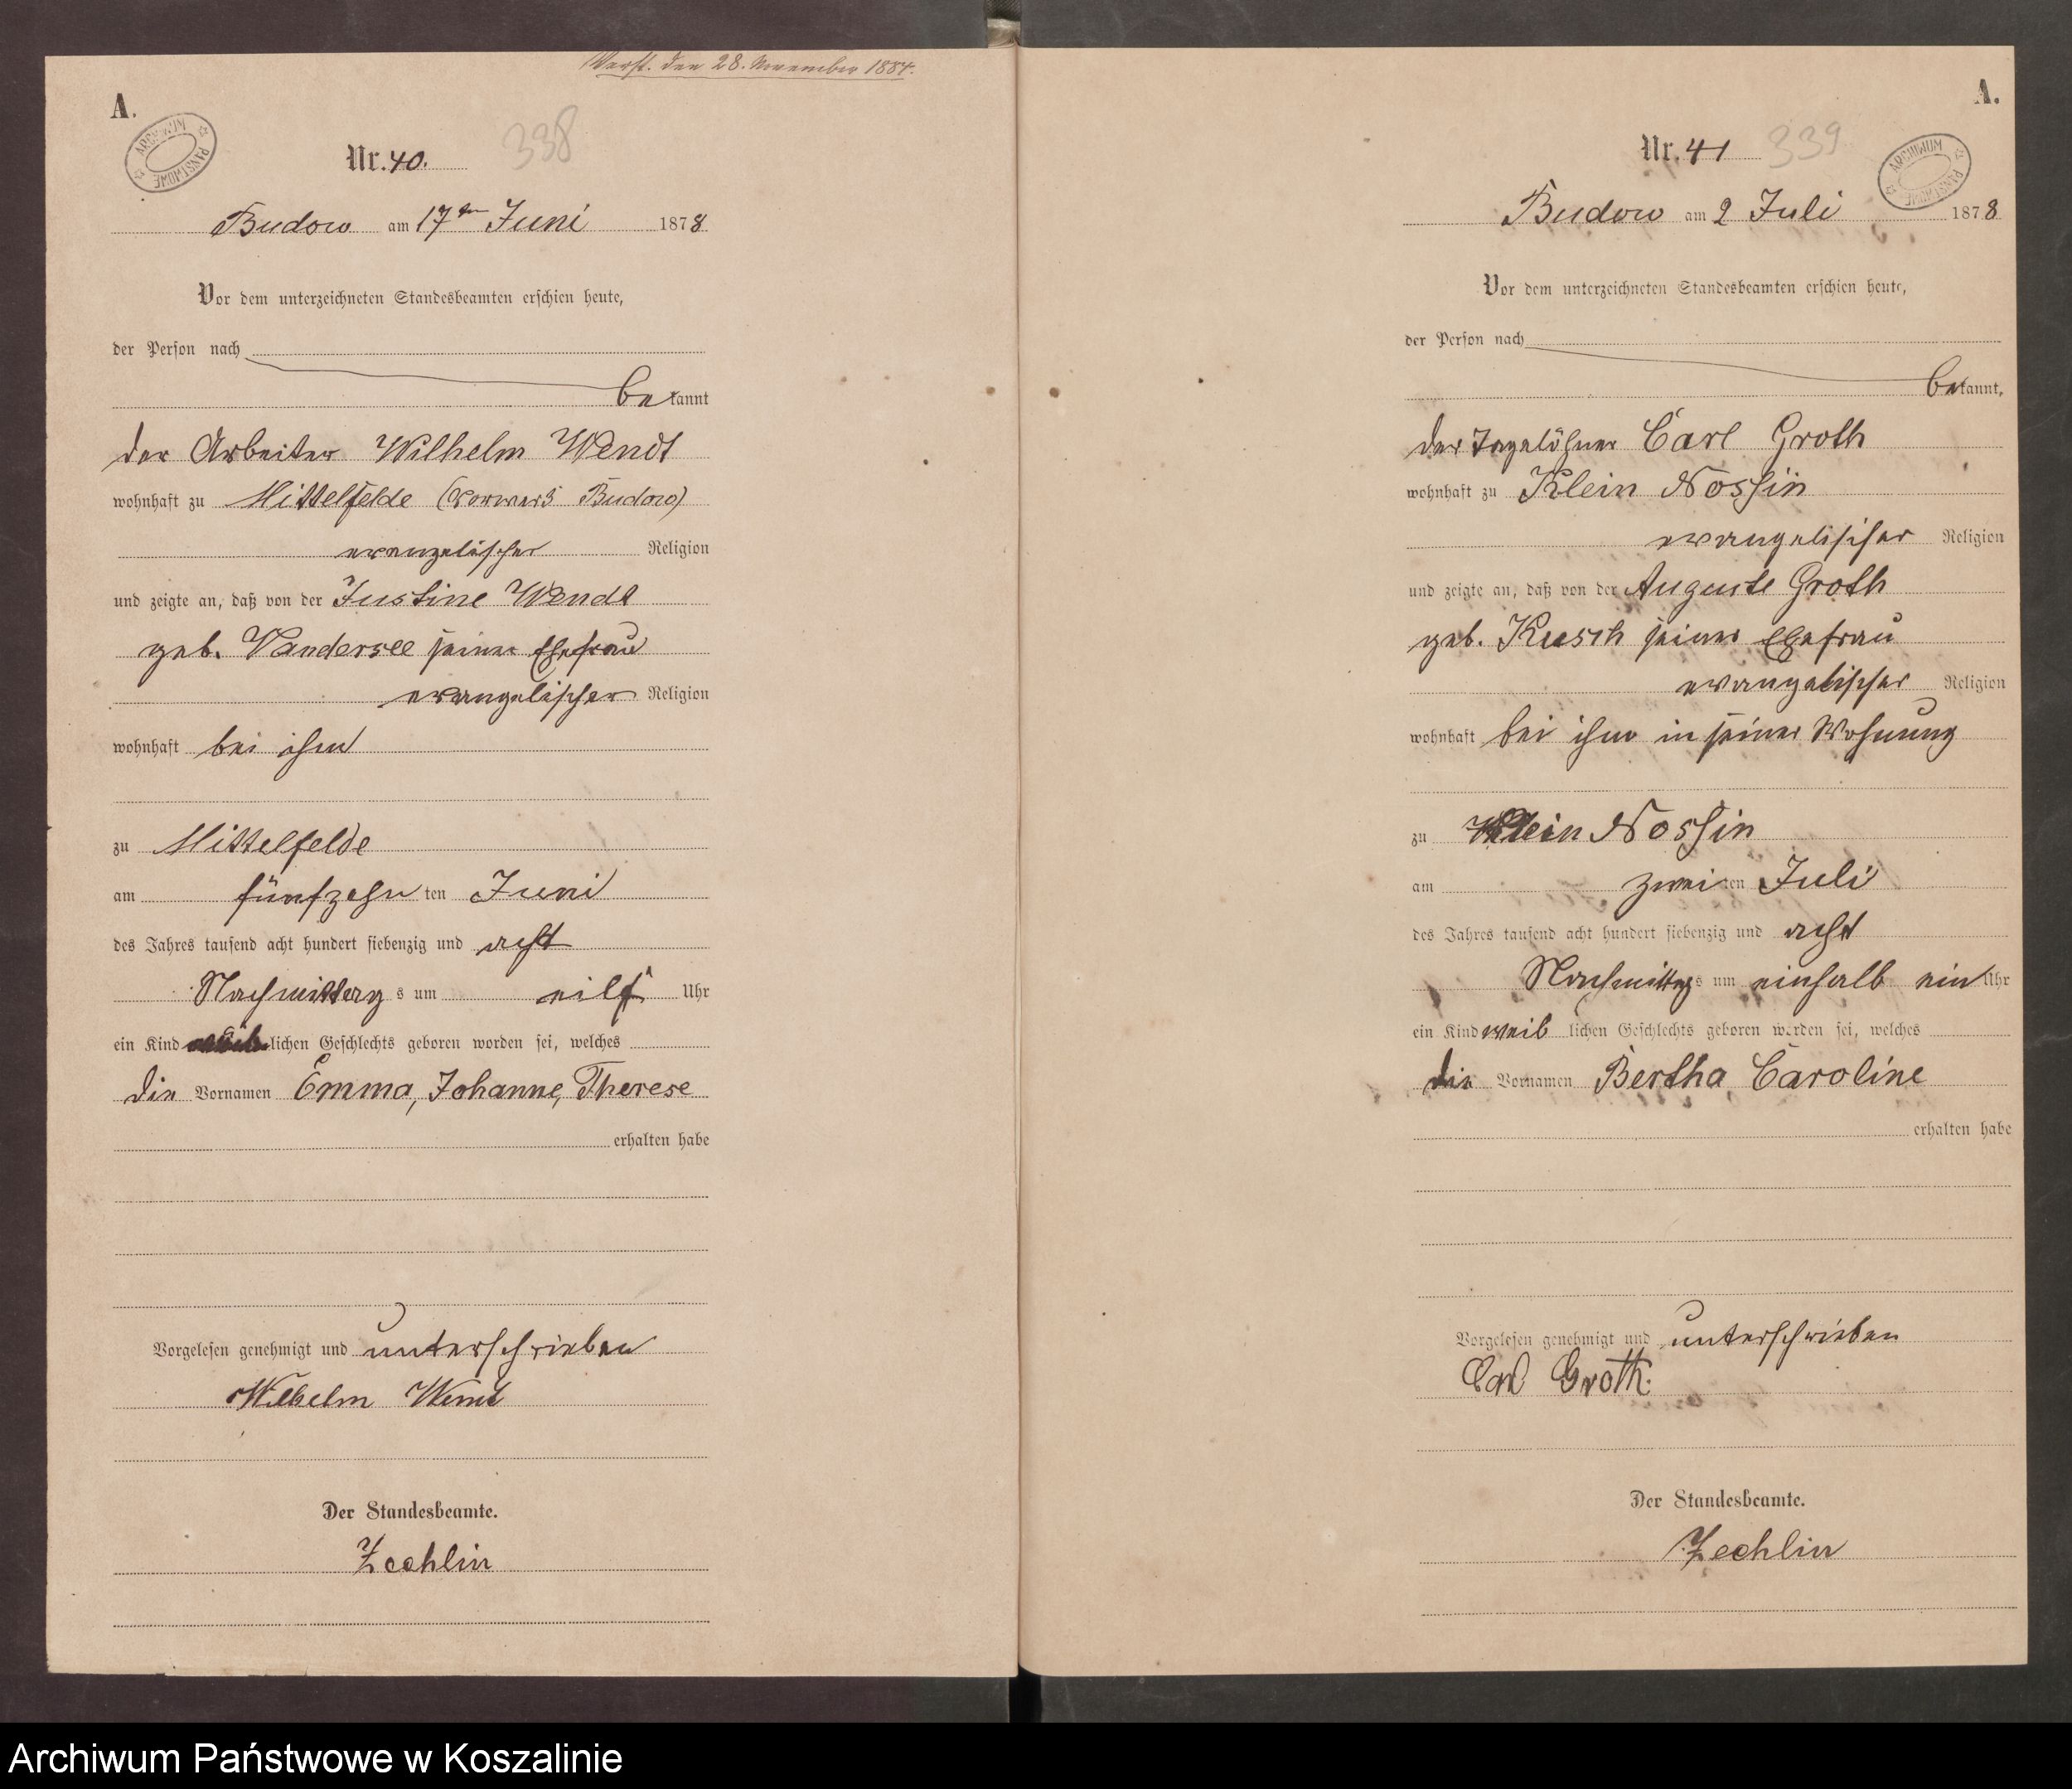 Verst. den 28. November 1884.
A.
ARCHIWUM PAŃSTWOWE
Nr. 40.
338
Budow am 17ten Juni 1878
Vor dem unterzeichneten Standesbeamten erschien heute,
der Person nach
bekannt
der Arbeiter Wilhelm Wendt
wohnhaft zu Mittelfelde (Vorwerk Budow)
evangelischer Religion
und zeigte an, daß von der Justine Wendt
geb. Vandersee seiner Ehefrau
evangelischer Religion
wohnhaft bei ihm
zu Mittelfelde
am fünfzehn ten Juni
des Jahres tausend acht hundert siebenzig und acht
Nachmittag s um eilf Uhr
ein Kind weiblichen Geschlechts geboren worden sei, welches
die Vornamen Emma, Johanne, Therese
erhalten habe
Vorgelesen genehmigt und unterschrieben
Wilhelm Wendt
Der Standesbeamte.
Zechlin
A.
ARCHIWUM PAŃSTWOWE
Nr. 41
339
Budow am 2 Juli 1878
Vor dem unterzeichneten Standesbeamten erschien heute,
der Person nach
bekannt,
der Tagelöhner Carl Groth
wohnhaft zu Klein Nossin
evangelischer Religion
und zeigte an, daß von der Auguste Groth
geb. Kusch seiner Ehefrau
evangelischer Religion
wohnhaft bei ihm in seiner Wohnung
zu Klein Nossin
am zwei ten Juli
des Jahres tausend acht hundert siebenzig und acht
Nachmittag s um einhalb ein Uhr
ein Kind weib lichen Geschlechts geboren worden sei, welches
die Vornamen Bertha Caroline
erhalten habe
Vorgelesen genehmigt und unterschrieben
Carl Groth.
Der Standesbeamte.
Zechlin
Archiwum Państwowe w Koszalinie